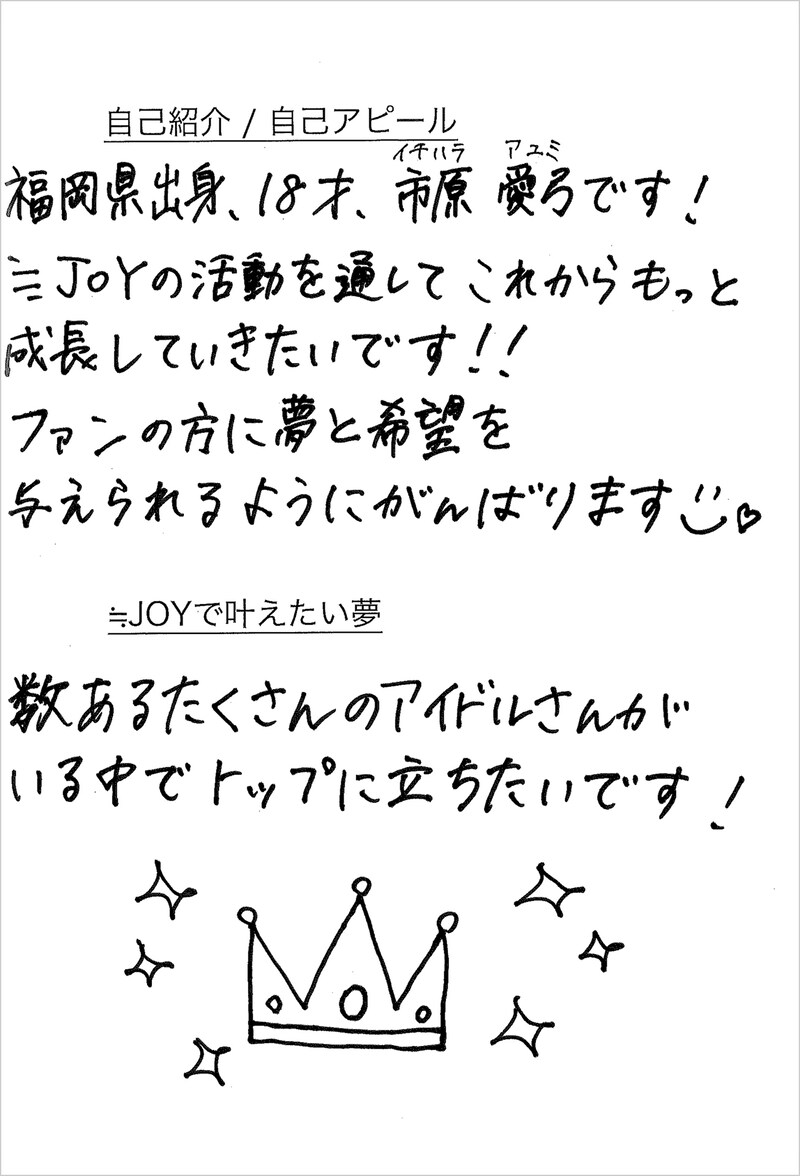 自己紹介 / 自己アピール
イチハラ アユミ
福岡県出身、18才、市原 愛弓です!
≒JOYの活動を通してこれからもっと
成長していきたいです!!
ファンの方に夢と希望を
与えられるようにがんばります
≒JOYで叶えたい夢
数あるたくさんのアイドルさんが
いる中でトップに立ちたいです!